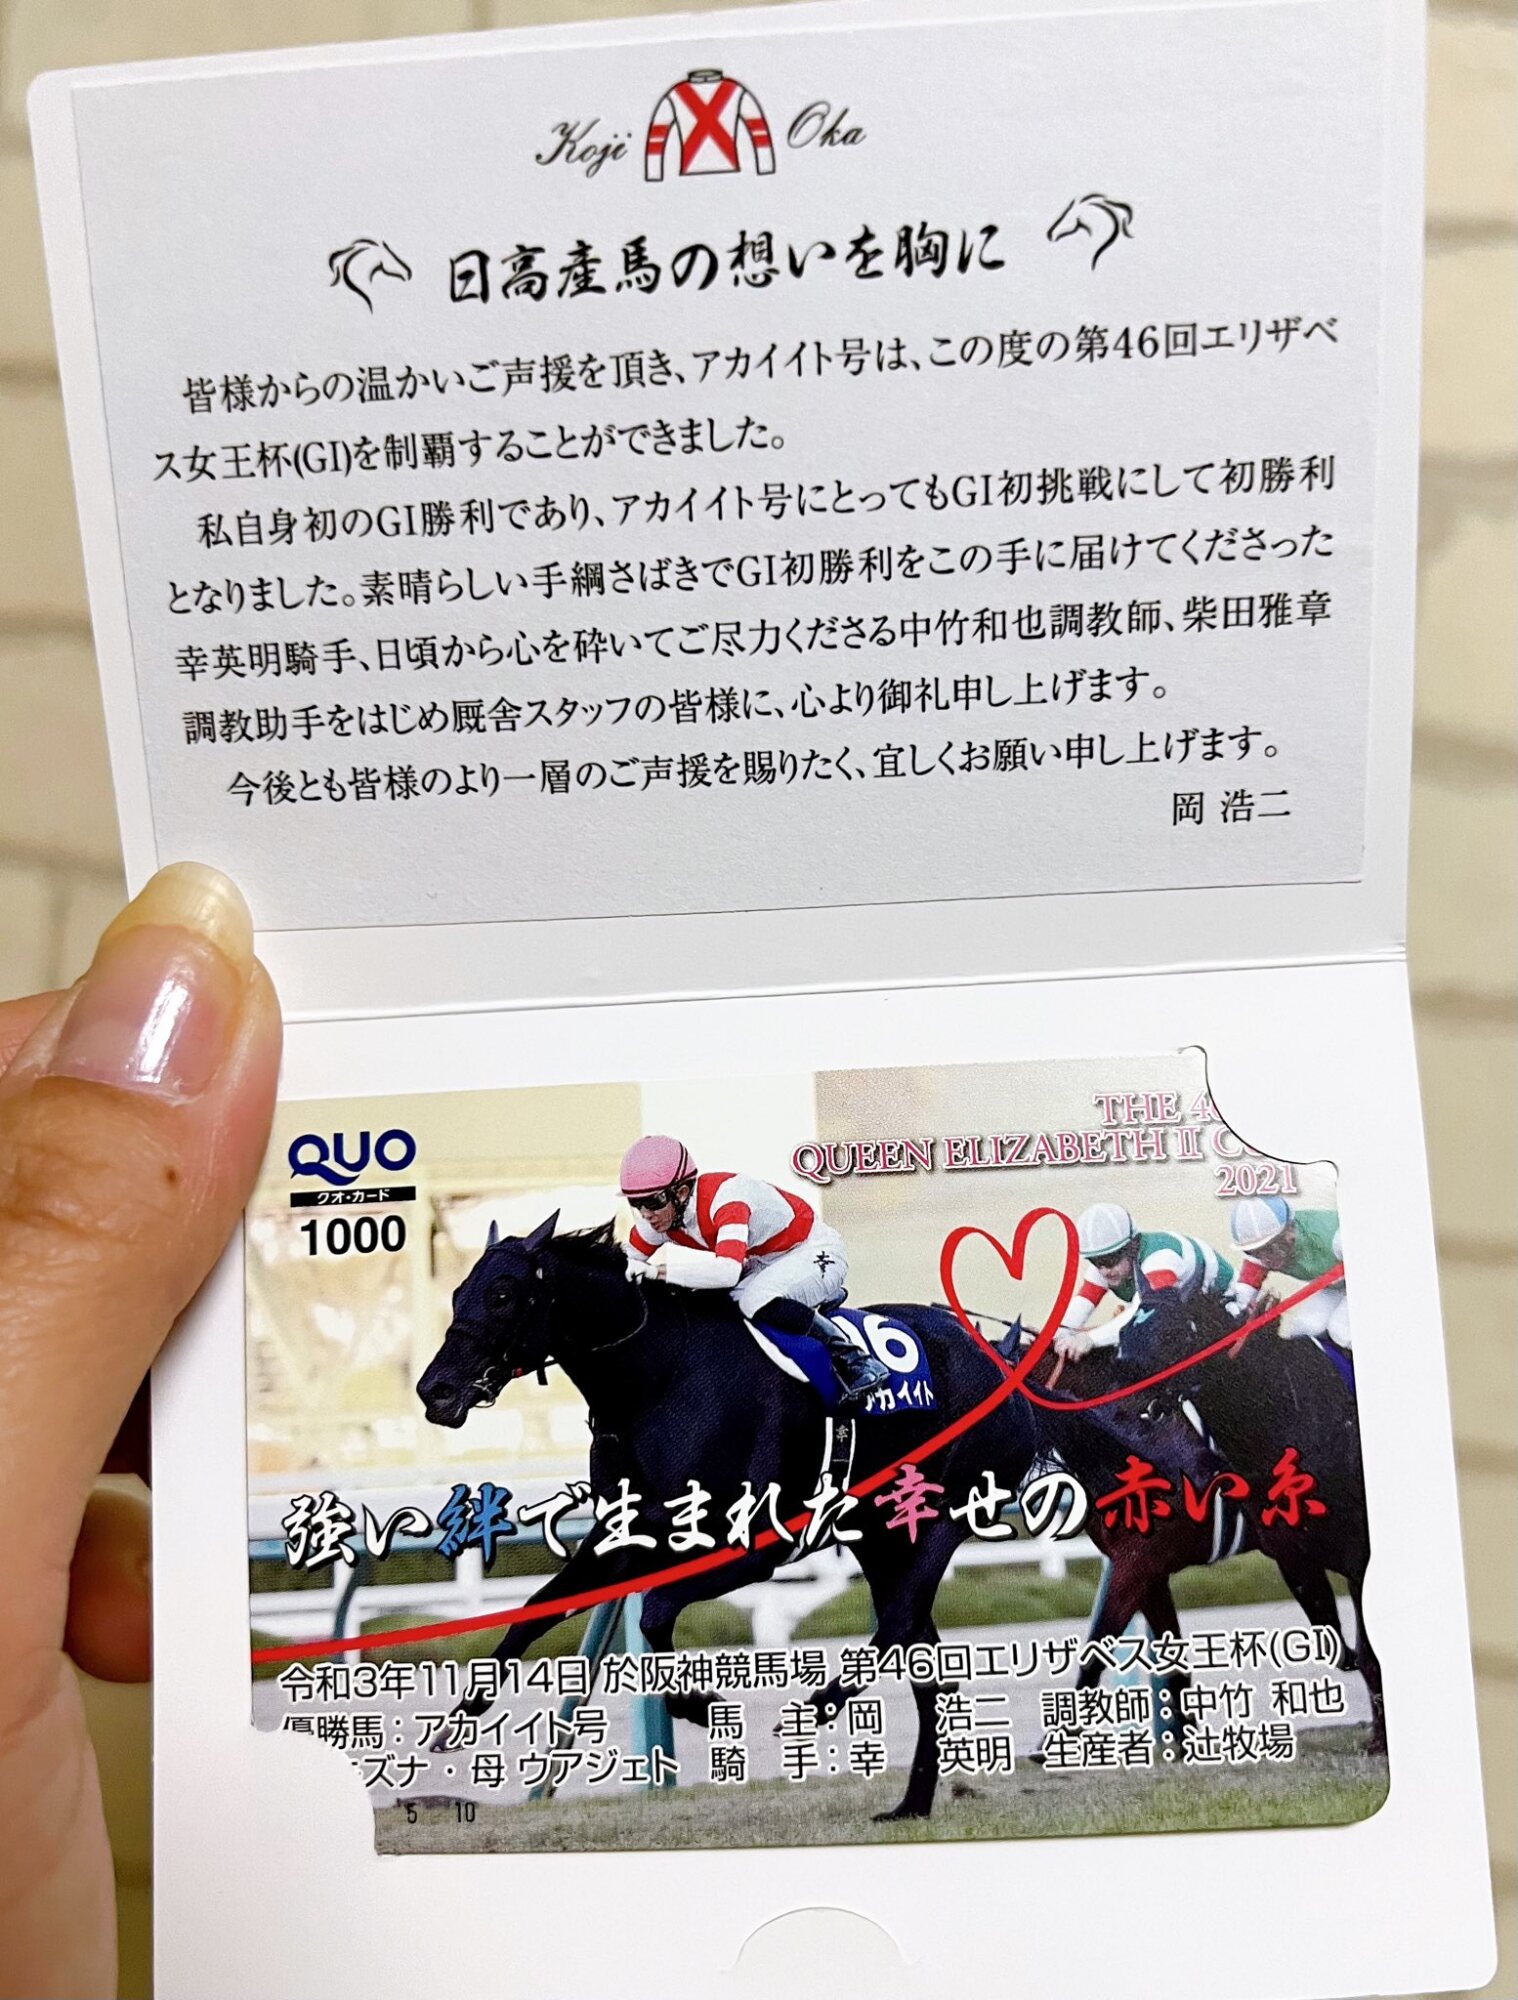 Koji Oka
日高産馬の想いを胸に
皆様からの温かいご声援を頂き、アカイイト号は、この度の第46回エリザベ
ス女王杯(GI)を制覇することができました。
私自身初のGI勝利であり、アカイイト号にとってもGI初挑戦にして初勝利
となりました。素晴らしい手綱さばきでGI初勝利をこの手に届けてくださった
幸英明騎手、日頃から心を砕いてご尽力くださる中竹和也調教師、柴田雅章
調教助手をはじめ厩舎スタッフの皆様に、心より御礼申し上げます。
今後とも皆様のより一層のご声援を賜りたく、宜しくお願い申し上げます。
岡 浩二
QUO
クオ・カード
1000
THE 4
QUEEN ELIZABETH II C
2021
幸
16
アカイイト
幸
強い絆で生まれた幸せの赤い糸
令和3年11月14日 於阪神競馬場 第46回エリザベス女王杯(GI)
優勝馬：アカイイト号 馬 主：岡 浩二 調教師：中竹 和也
ズナ・母 ウアジェト 騎 手：幸 英明 生産者：辻牧場
5 10